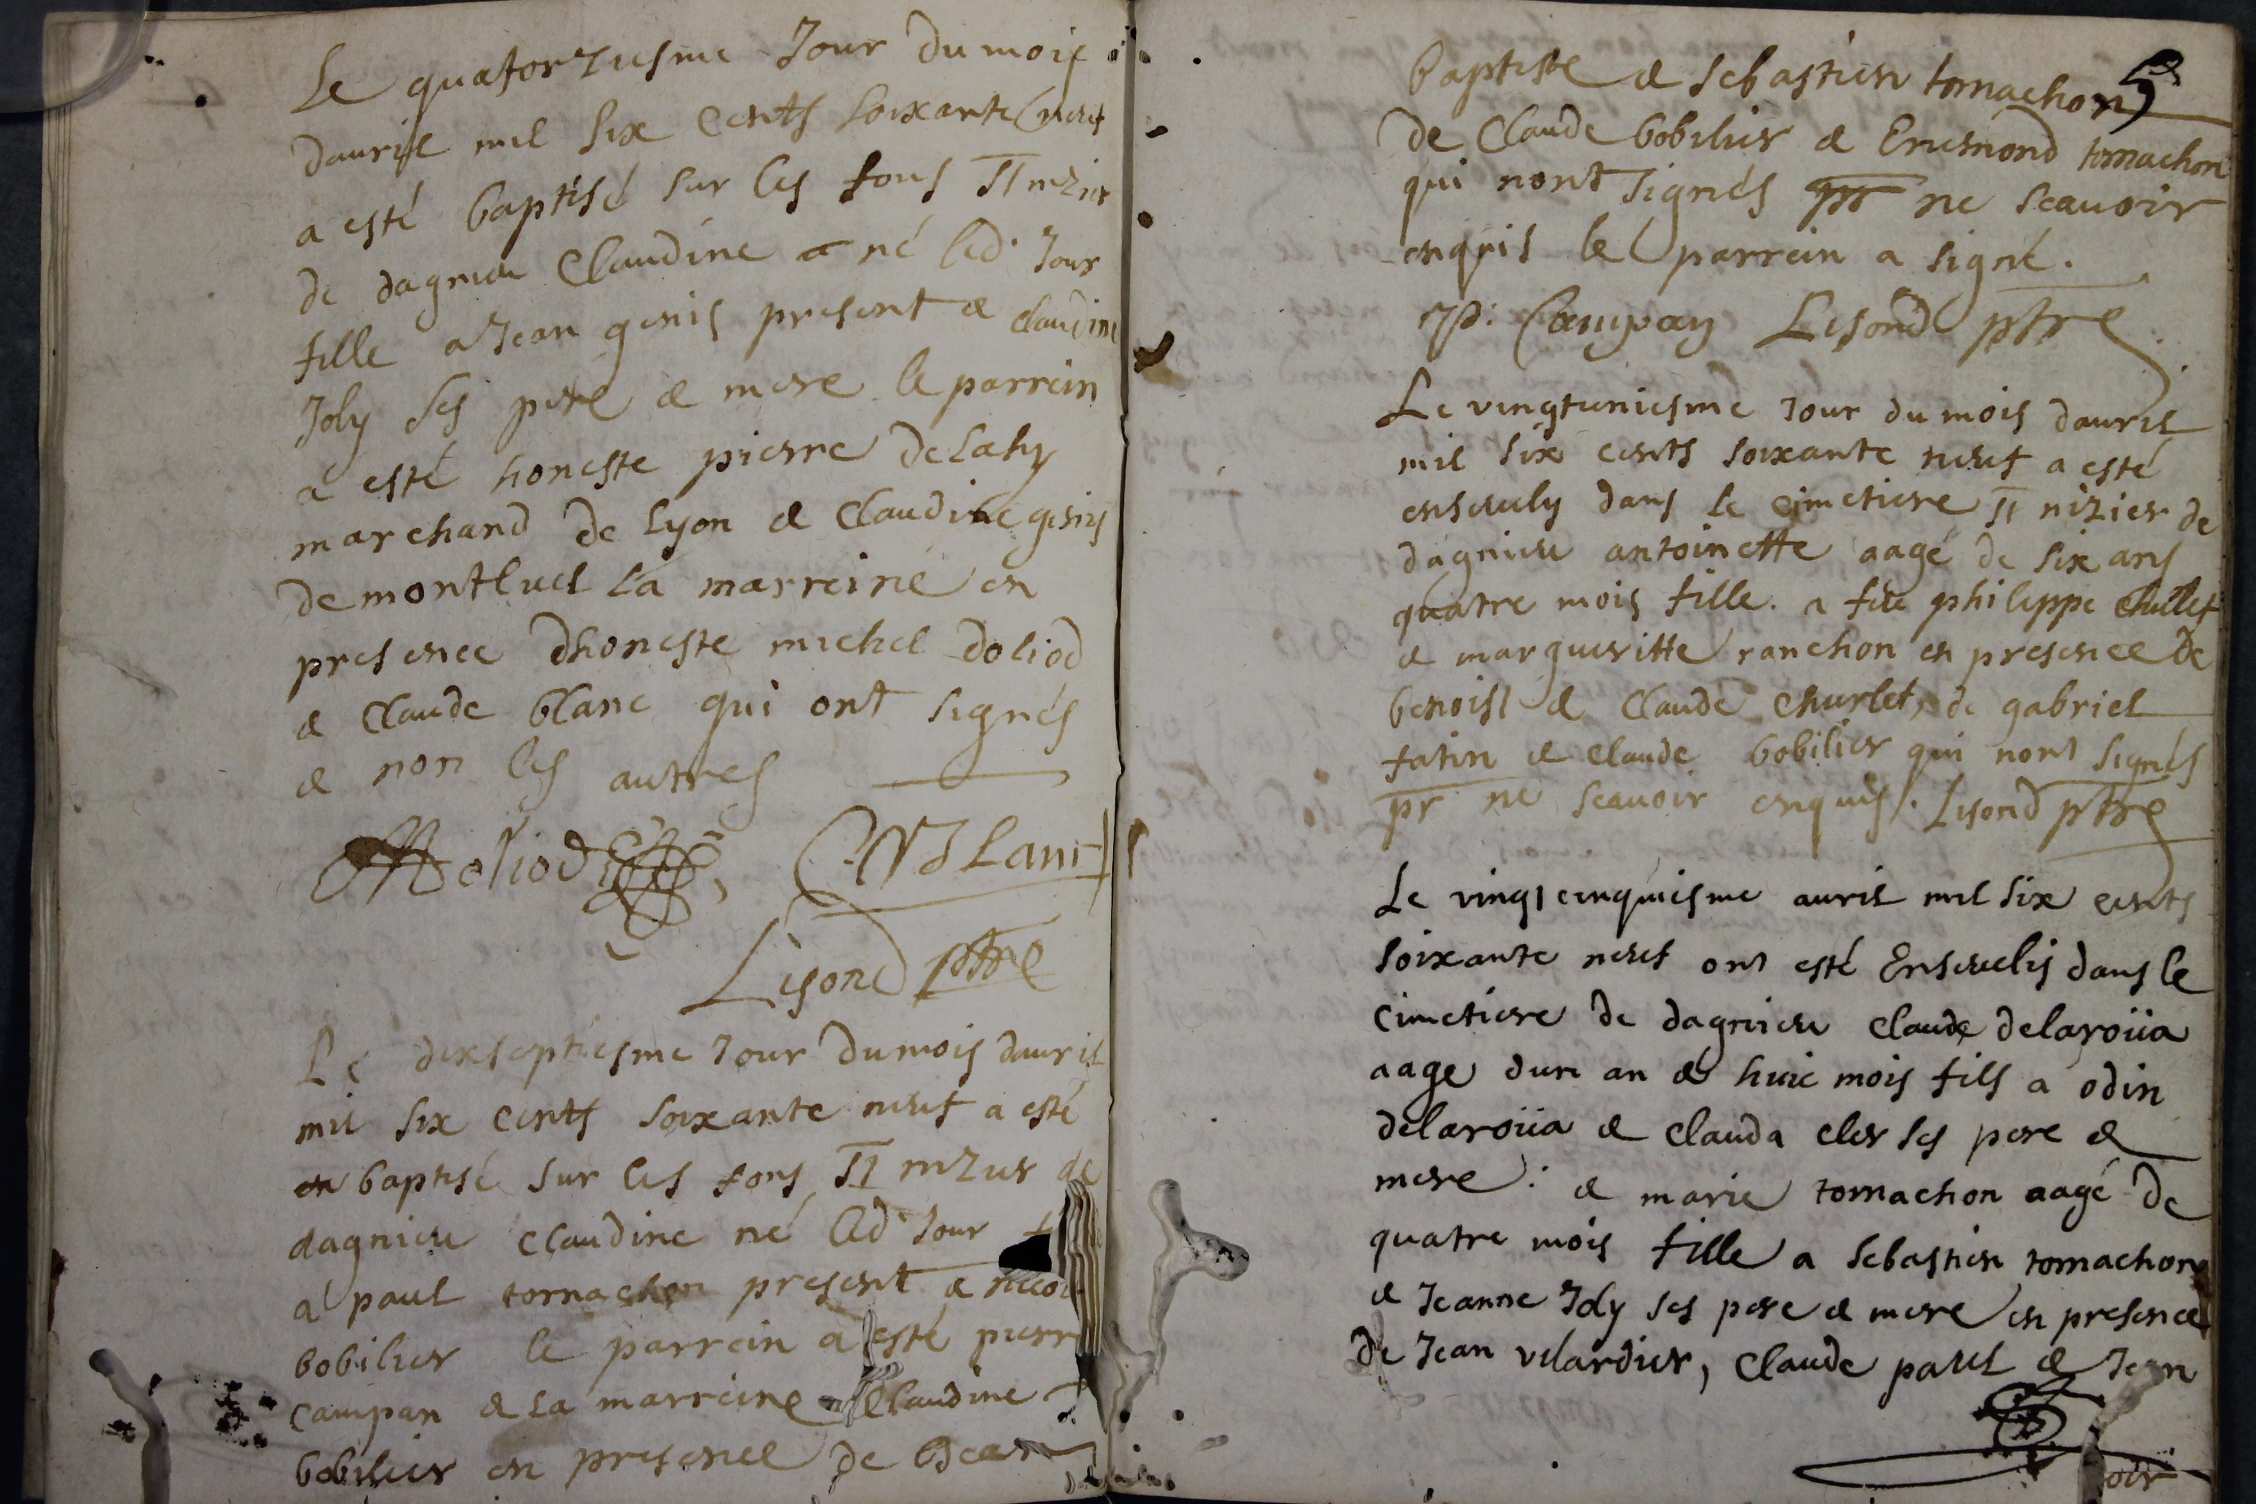 Le quatorziesme Jour du mois
dauril mil six cents soixante neuf
a esté baptisé sur les fons St nizier
de dagnieu Claudine né led. Jour
fille a Jean genis present & claudine
Joly ses pere & mere le parrein
a esté honeste pierre Delahy
marchand de Lyon & Claudine genis
de montluel la marreine en
presence dhoneste michel doliod
& Claude blanc qui ont signés
& non les autres
Moliod C. Blanc
Lisond ptre
Le dixseptiesme Jour du mois dauril
mil six cents soixante neuf a esté
baptisé sur les fons St nizier de
dagnieu claudine né led. Jour
a paul tornachon present &
bobilier le parrein a esté pierre
campan & la marreine Claudine
bobilier en presence de
baptiste & sebastien tornachon
de Claude bobilier & Enemond tornachon
qui nont signés pr ne scauoir
enquis le parrein a signé.
P. Campan Lisond ptre
Le vingtuniesme Jour du mois dauril
mil six cents soixante neuf a esté
enseuely dans le cimetiere St nizier de
dagnieu antoinette aagé de six ans
quatre mois fille. a feu philippe
& margueritte ranchon en presence de
benoist & Claude churlet, de gabriel
fatin & claude bobilier qui nont signés
pr ne scauoir enquis. Lisond ptre
Le vingt cinquiesme auril mil six cents
soixante neuf ont esté Enseuelis dans le
cimetiere de dagnieu claude delaroüa
aage dun an & huic mois fils a odin
delaroüa & clauda cler ses pere &
mere: & marie tornachon aagé de
quatre mois fille a sebastien tornachon
& Jeanne Joly ses pere & mere en presence
de Jean vilardier, claude paul & Jean